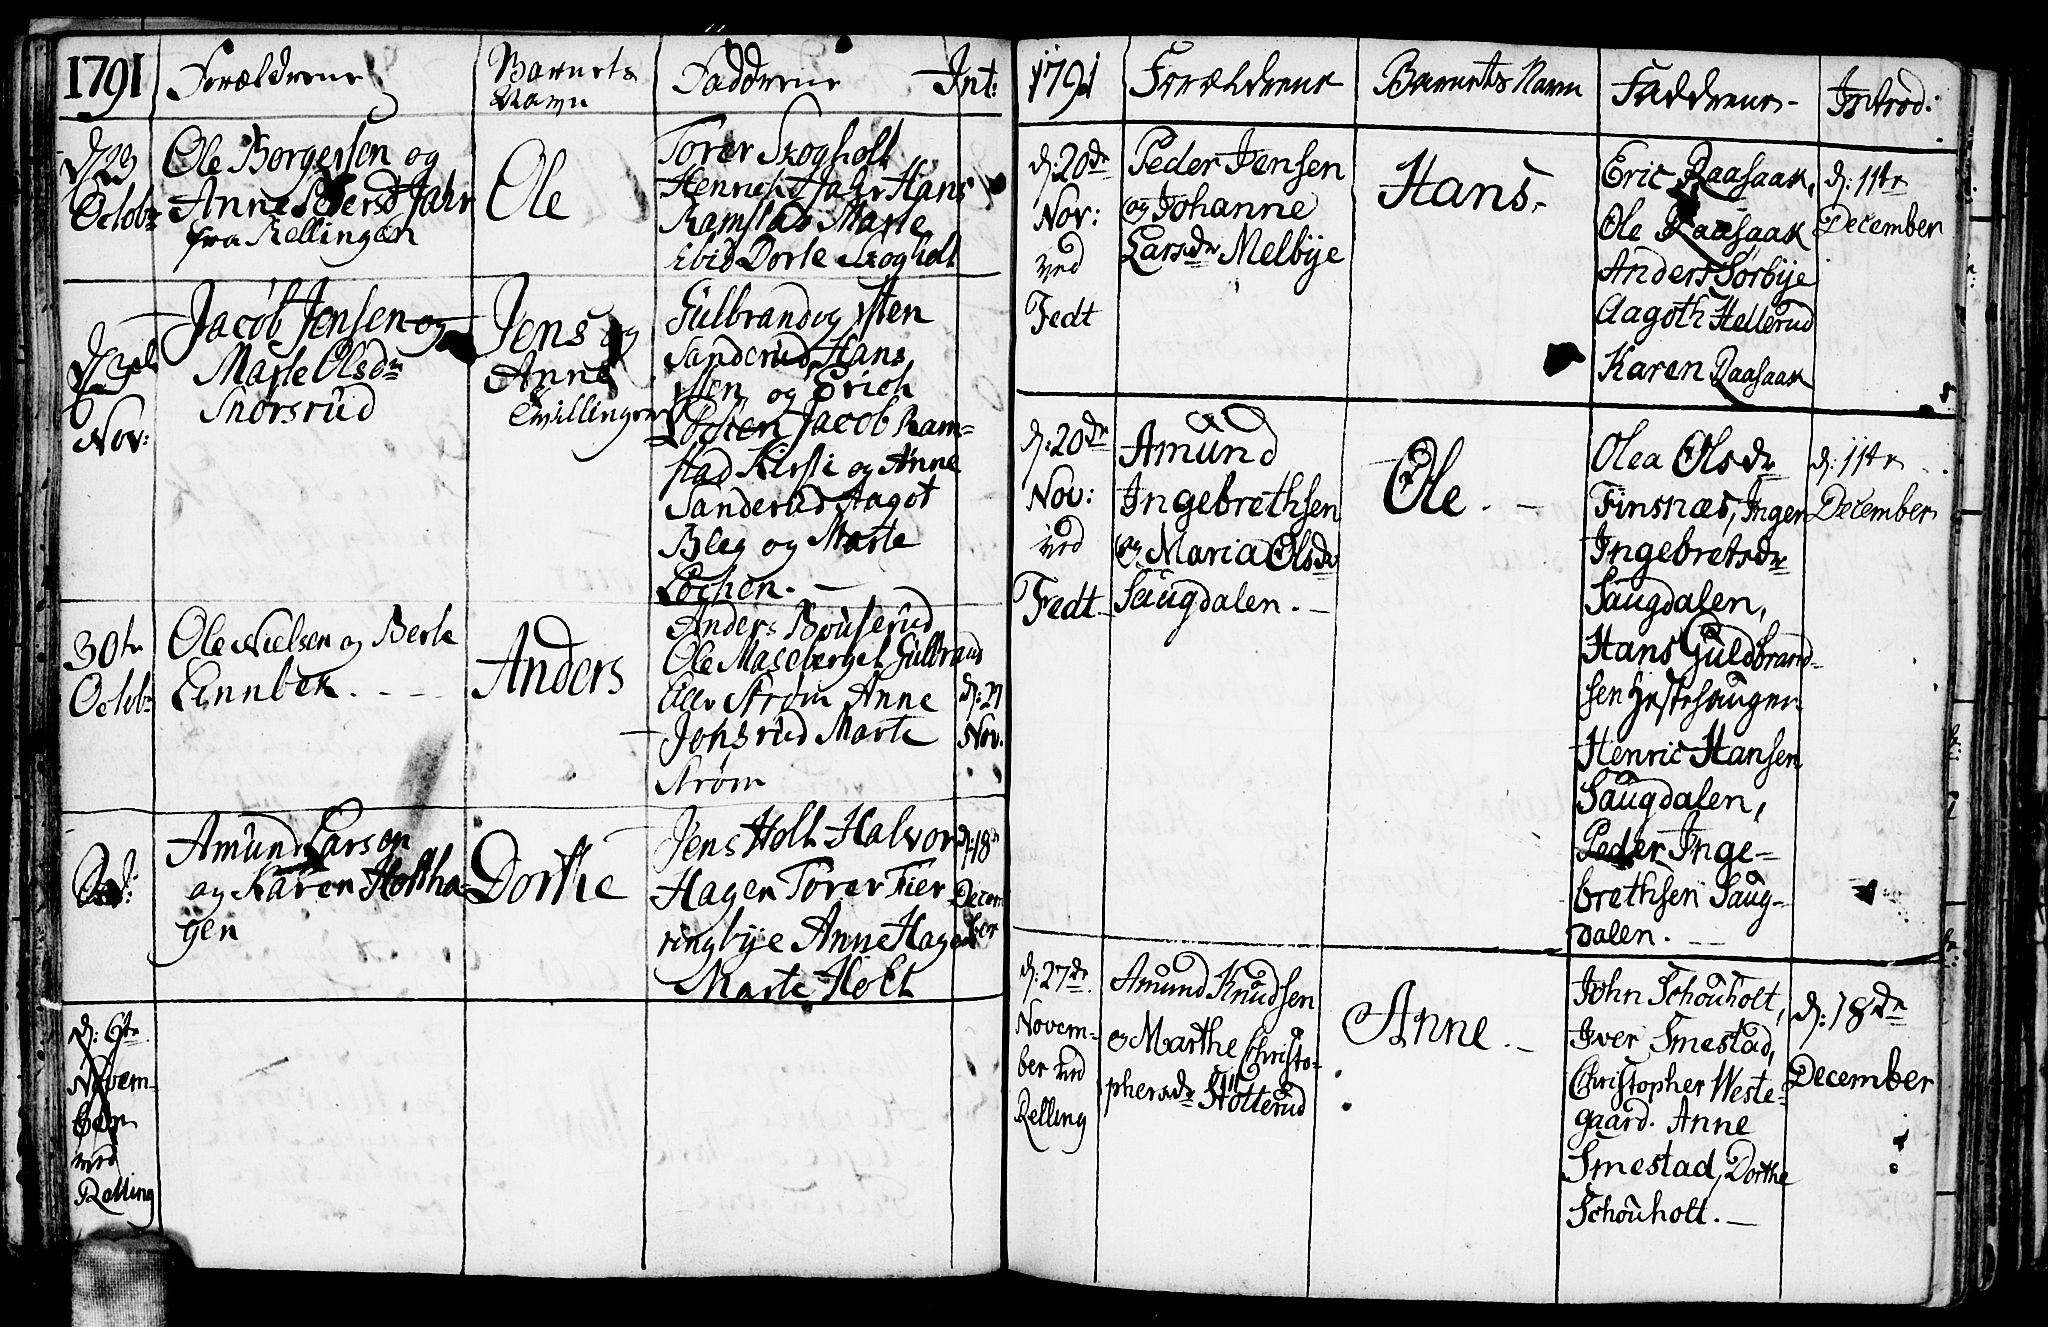 1791
Forældrene
Barnets
Navn
Fadderne
Int:
d 23
Octobr
Ole Borgersen og
Anne Jahr
fra Rellingen
Ole
Torer Skogholt
Henrich Jahr Hans
Ramstad Marte
ibid Dorte Skogholt
Nov:
Jacob Jensen og
Marte Olsdr
Snorsrud
Jens og
Anne
Tvillinger
Gulbrand og Sten
Sanderud Hans
Sten og Erich
Løchen Jacob Ram-
stad Kirsti og Anne
Sanderud Aagot
Bleg og Marte
Løchen. -
30te
Octobr
Ole Nielsen og Berte
Linnbek. - -
Anders
Anders Bouserud
Ole Maseberget Gulbrand
Strøm Anne
Johsrud Marte
Strøm
d: 27
Nov.
Amund Larsen
og Karen Holtha-
gen
Dorthe
Jens Holt Halvor
Hagen Torer Fier-
ringbye Anne Hagen
Marte Holt
d: 18de
Decem-
ber
d: 6te
Novem-
ber
ved
Relling
1791
Forældrene
Barnets Navn
Faddrene-
Introd:
d: 20de
Nov:
ved
Fedt
Peder Jensen
og Johanne
Larsdr Melbye
Hans.-
Eric Raasaak,
Ole Raasaak
Anders Sørbye
Aagoth Hellerud
Karen Raasaak
d: 11te
December
d: 20de
Nov:
ved
Fedt.
Amund
Ingebrethsen
og Maria Olsdr
Saugdalen. -
Ole. -
Olea Olsdr
Finsnæs, Inger
Ingebretsdr
Saugdalen,
Hans Guldbrand-
sen Hestehaugen
Henric Hansen
Saugdalen,
Peder Inge-
brethsen Saug-
dalen. -
d: 11te
December
d: 27de
Novem-
ber ved
Relling
Amund Knudsen
og Marthe Christo-
phersdr Stötterud
Anne. -
John Schouholt,
Iver Smestad,
Christopher Weste-
gaard. Anne
Smestad, Dorthe
Schouholt. -
d: 18de
December